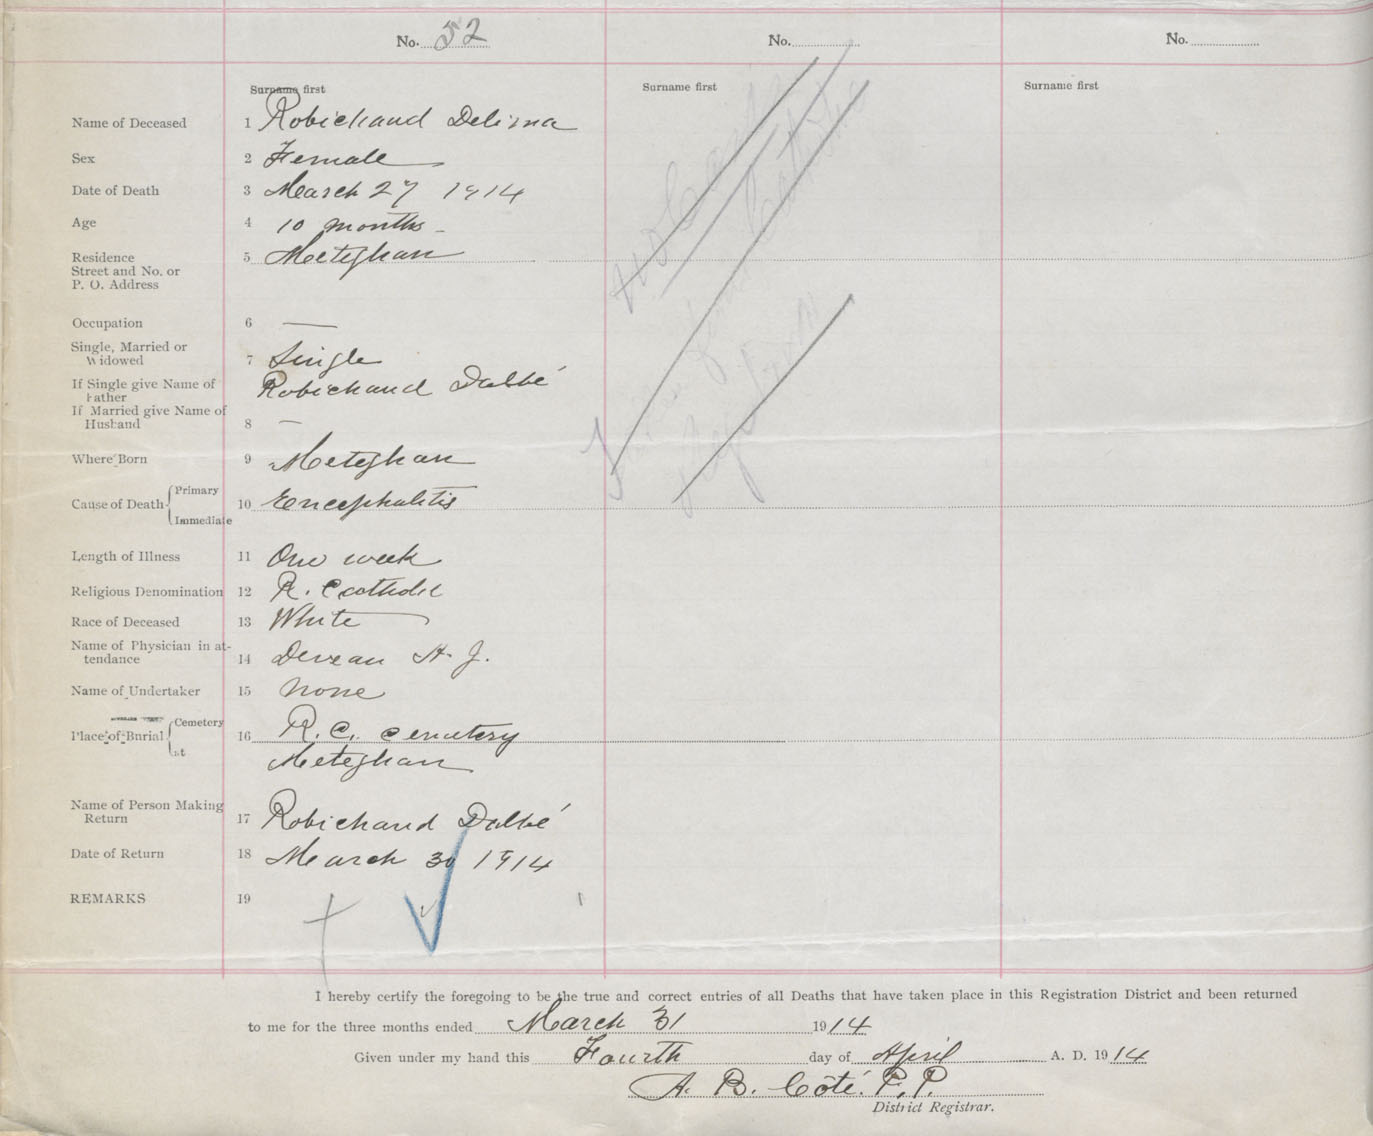 No. 52 No. No.
Surname first Surname first Surname first
Name of Deceased 1 Robichaud Delima
Sex 2 Female
Date of Death 3 March 27 1914
Age 4 10 months
Residence 5 Meteghan
Street and No. or
P. O. Address
Occupation 6 —
Single, Married or
Widowed 7 Single
If Single give Name of
Father Robichaud Dalbé
If Married give Name of
Husband 8 —
Where Born 9 Meteghan
Cause of Death Primary
10 Encephalitis
Immediate
Length of Illness 11 One week
Religious Denomination 12 R. Catholic
Race of Deceased 13 White
Name of Physician in at-
tendance 14 Deveau H. J.
Name of Undertaker 15 None
Place of Burial Cemetery
16 R. C. Cemetery
at Meteghan
Name of Person Making
Return 17 Robichaud Dalbé
Date of Return 18 March 30 1914
REMARKS 19
I hereby certify the foregoing to be the true and correct entries of all Deaths that have taken place in this Registration District and been returned
to me for the three months ended March 31 1914
Given under my hand this Fourth day of April A. D. 1914
A. B. Côté. P. P.
District Registrar.